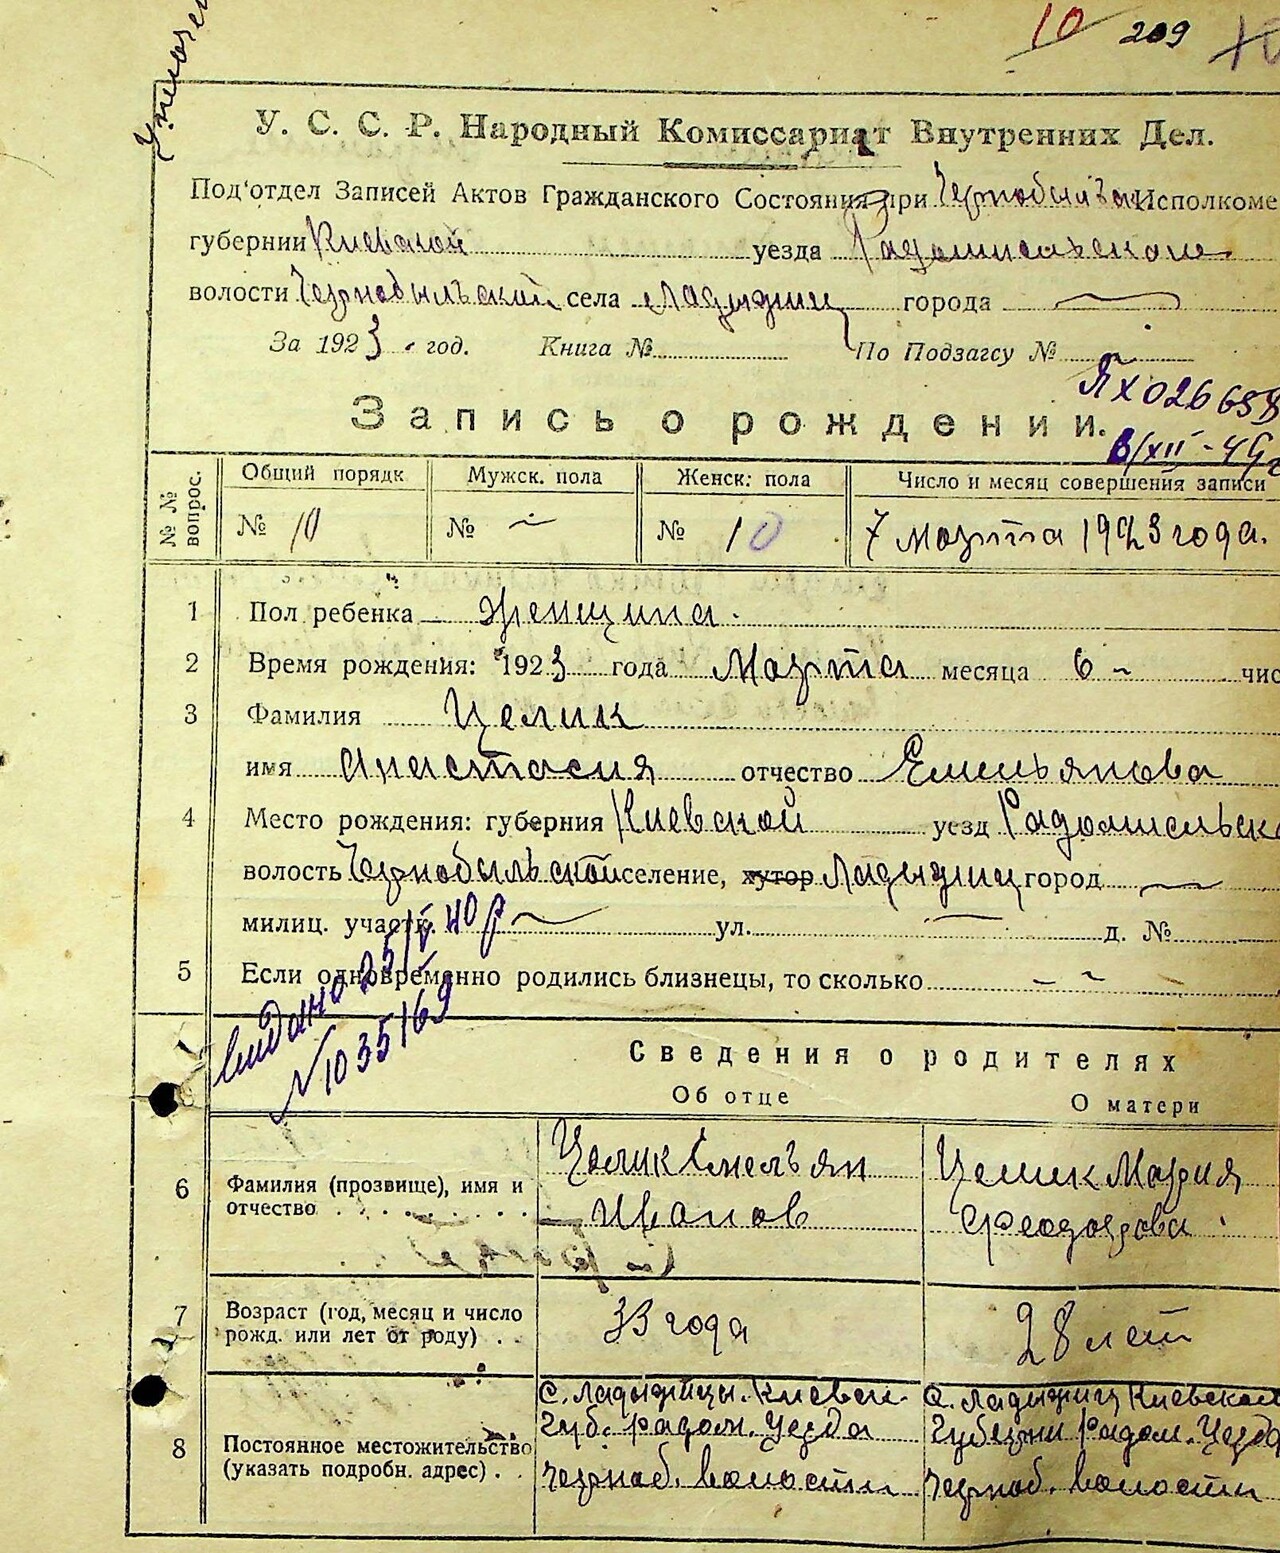 10 209
У. С. С. Р. Народный Комиссариат Внутренних Дел.
Под'отдел Записей Актов Гражданского Состояния при Исполкоме
губернии Киевской уезда Радомисльского
волости Чернобыльской села Ладыжич города
За 1923 год. Книга № По Подзагсу №
ЯХ 026
Запись о рождении.
№ № вопрос.
Общий порядк Мужск. пола Женск. пола Число и месяц совершения записи
№ 10 № — № 10 7 марта 1923 года.
1 Пол ребенка Женщина.
2 Время рождения: 1923 года Марта месяца 6 чис
3 Фамилия Целик
имя Анастасия отчество Емельянова
4 Место рождения: губерния Киевской уезд Радомисльско
волость Чернобыльской селение, хутор Ладыжич город —
милиц. участк. — ул. — д. №
5 Если одновременно родились близнецы, то сколько —
видано 25/V 40 р
№1035169
Сведения о родителях
Об отце О матери
6 Фамилия (прозвище), имя и отчество
Целик Емельян
Иванов
Целик Мария
Феодорова
7 Возраст (год, месяц и число рожд. или лет от роду)
33 года 28 лет
8 Постоянное местожительство (указать подробн. адрес)
С. Ладыжичы. Киевск.
Губ. Радом. Уезда
Черноб. волости
С. Ладыжич Киевской
Губернии Радом. Уезда
Черноб. волости